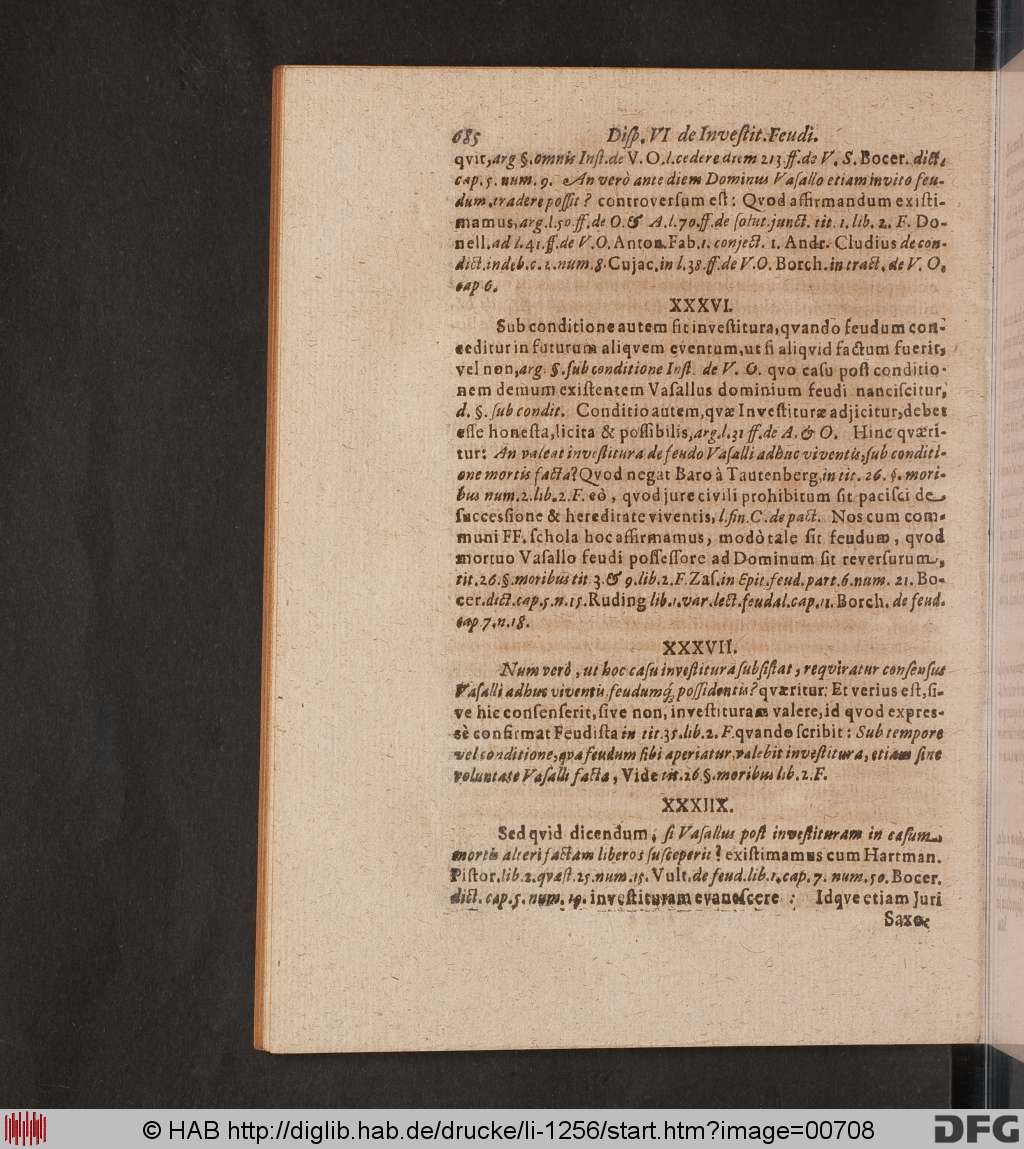 685 Disp. VI de Investit. Feudi.
qvit, arg §. omnis Inst. de V. O. l. cedere diem 213. ff. de V. S. Bocer. dict.
cap. 5. num. 9. An verò ante diem Dominus Vasallo etiam invito feu-
dum tradere possit? controversum est: Qvod affirmandum existi-
mamus, arg. l. 50. ff. de O. & A. l. 70. ff. de solut. junct. tit. 1. lib. 2. F. Do-
nell. ad l. 41. ff. de V. O. Anton. Fab. 1. conject. 1. Andr. Cludius de con-
dict. indeb. c. 2. num. 8. Cujac. in l. 38. ff. de V. O. Borch. in tract. de V. O.
cap 6.
XXXVI.
Sub conditione autem fit investitura, qvando feudum con-
ceditur in futurum aliqvem eventum, ut si aliqvid factum fuerit,
vel non, arg. §. sub conditione Inst. de V. O. qvo casu post conditio-
nem demum existentem Vasallus dominium feudi nanciscitur,
d. §. sub condit. Conditio autem, qvæ Investituræ adjicitur, debet
esse honesta, licita & possibilis, arg. l. 31 ff. de A. & O. Hinc qværi-
tur: An valeat investitura de feudo Vasalli adhuc viventis, sub conditi-
one mortis facta? Qvod negat Baro à Tautenberg. in tit. 26. §. mori-
bus num. 2. lib. 2. F. eò, qvod jure civili prohibitum sit pacisci de
successione & hereditate viventis, l. fin. C. de pact. Nos cum com-
muni FF. schola hoc affirmamus, modò tale sit feudum, qvod
mortuo Vasallo feudi possessore ad Dominum sit reversurum,
tit. 26. §. moribus tit 3. & 9. lib. 2. F. Zas. in Epit. feud. part. 6. num. 21. Bo-
cer. dict. cap. 5. n. 15. Ruding lib. 1. var. lect. feudal. cap. 11. Borch. de feud.
cap 7. n. 18.
XXXVII.
Num verò, ut hoc casu investitura subsistat, reqviratur consensus
Vasalli adhuc viventis feudumq́; possidentis? qværitur: Et verius est, si-
ve hic consenserit, sive non, investituram valere, id qvod expres-
sè confirmat Feudista in tit. 35. lib. 2. F. qvando scribit: Sub tempore
vel conditione, qva feudum sibi aperiatur, valebit investitura, etiam sine
voluntate Vasalli facta, Vide tit. 26 §. moribus lib. 2. F.
XXXIIX.
Sed qvid dicendum, si Vasallus post investituram in casum
mortis alteri factam liberos susceperit? existimamus cum Hartman.
Pistor. lib. 2. qvæst. 25. num. 15. Vult. de feud. lib. 1. cap. 7. num. 50. Bocer.
dict. cap. 5. num. 19. investituram evanescere: Idqve etiam Juri
Saxo-
© HAB http://diglib.hab.de/drucke/li-1256/start.htm?image=00708
DFG